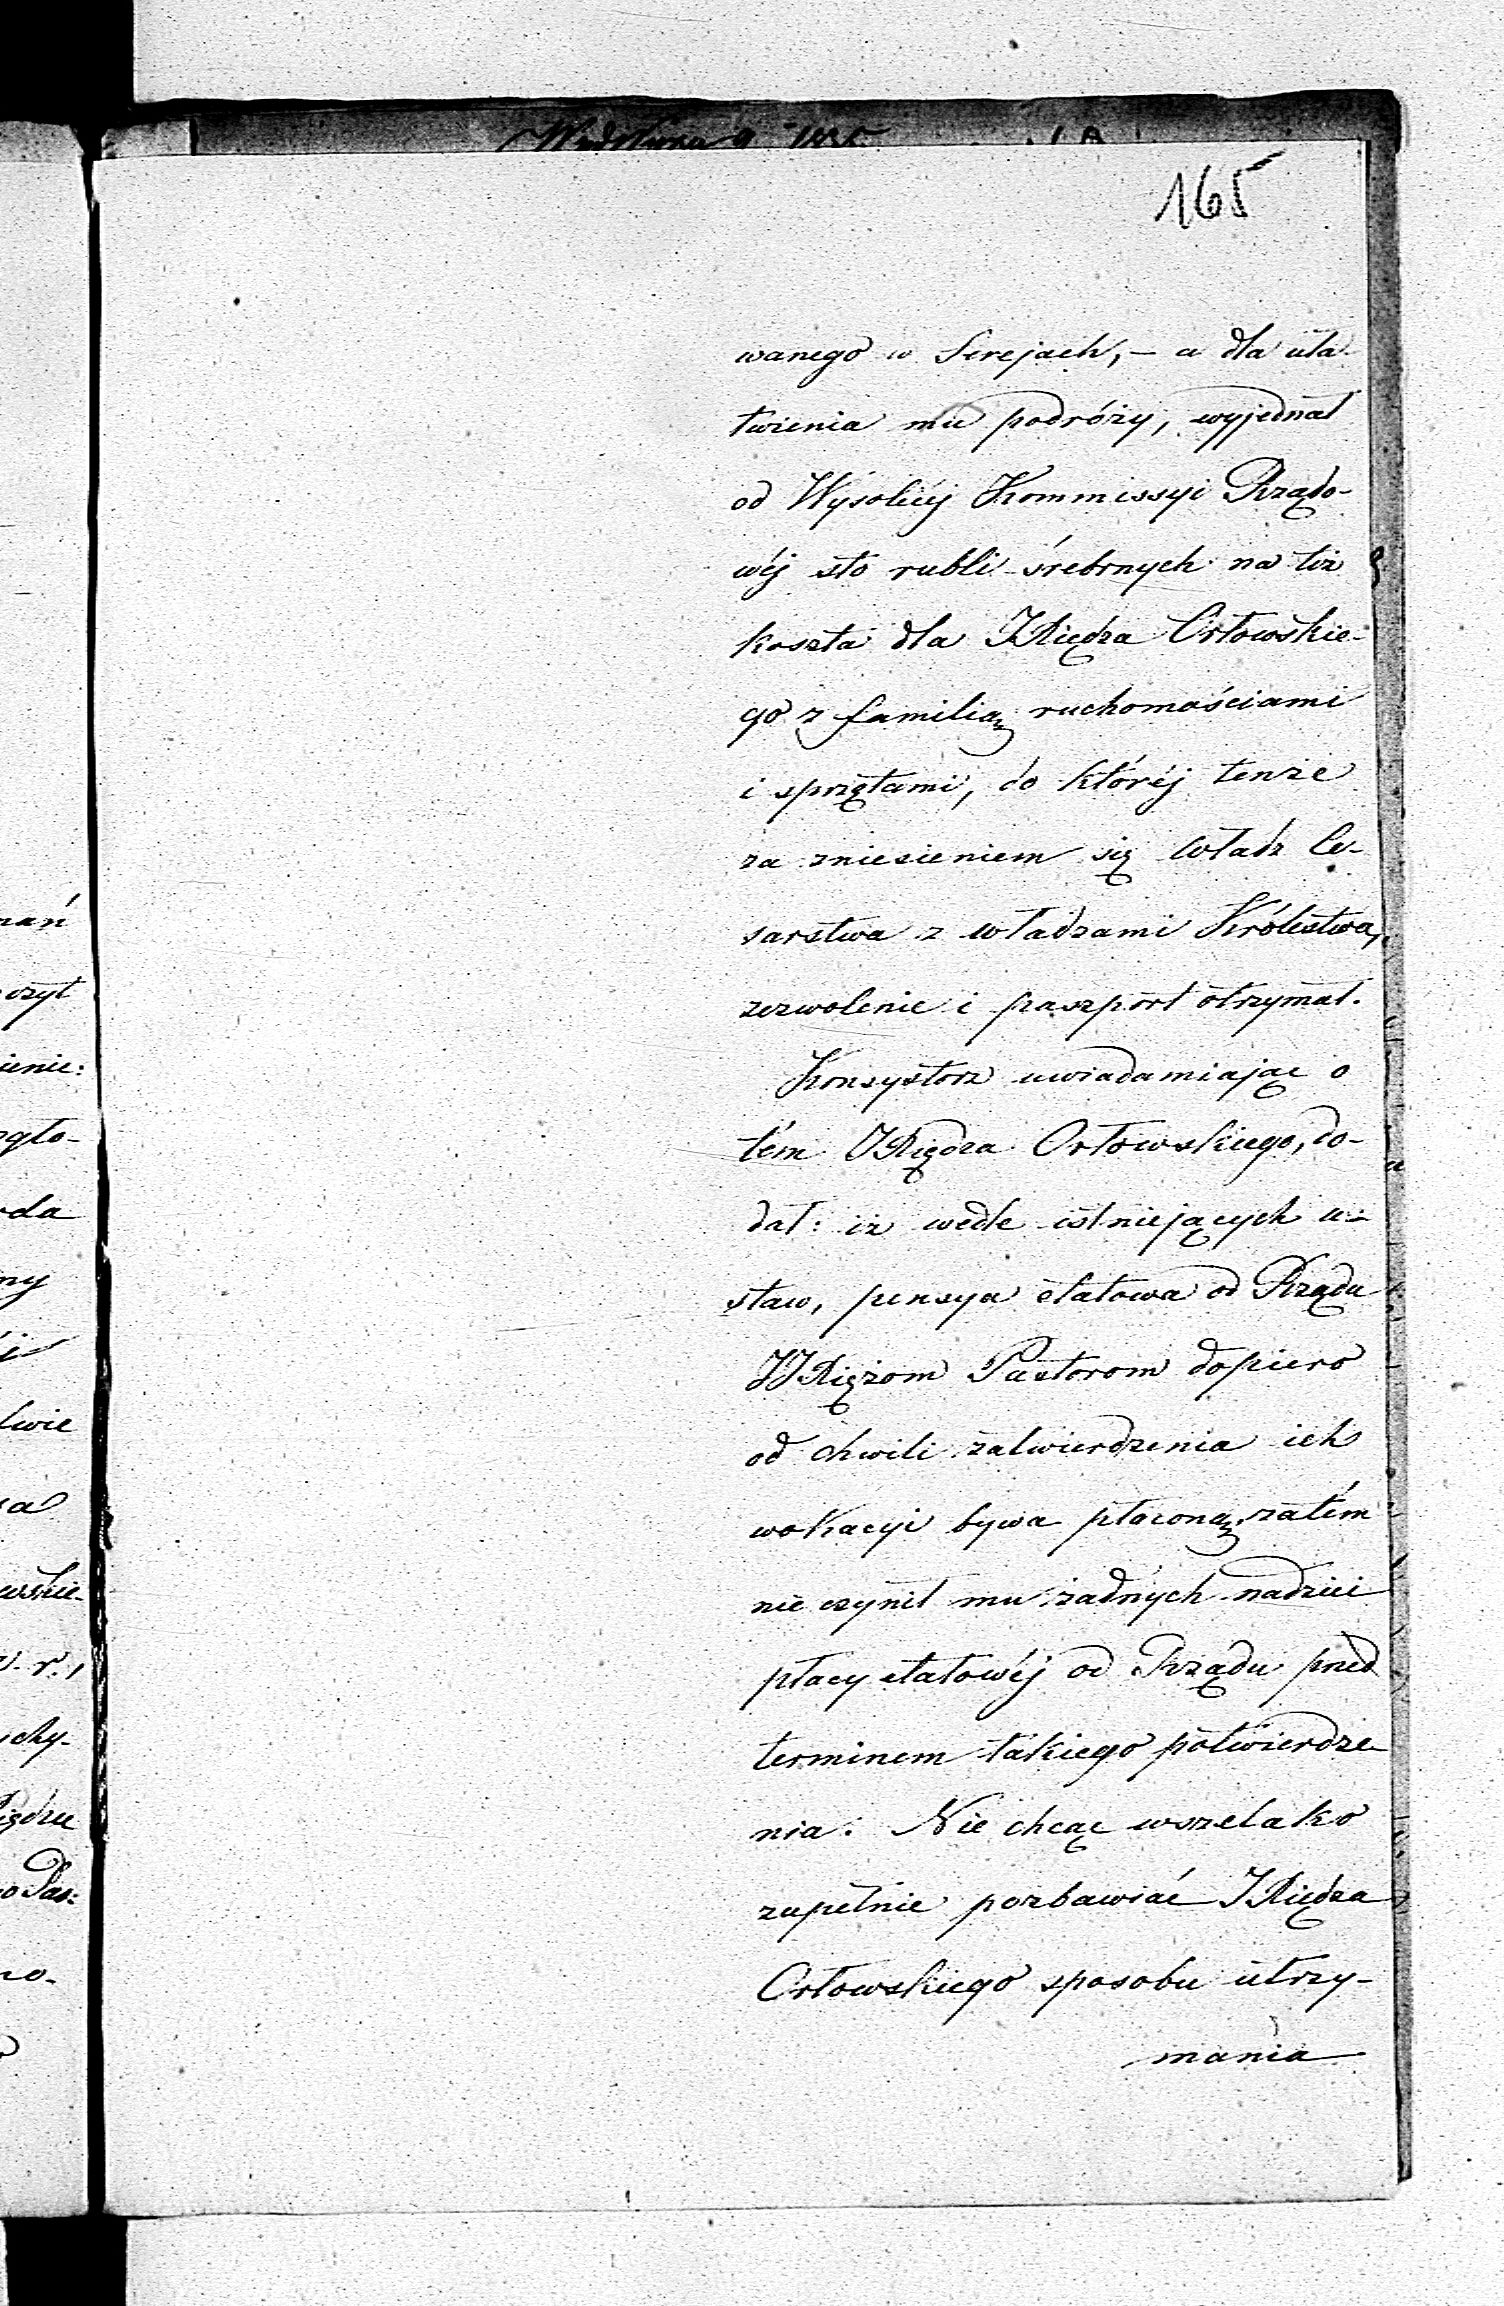 165
wanego w Serejach, – a dla uła
twienia mu podróży, wyjednał
od Wysokiéj Kommissyi Rządo-
wéj sto rubli śrebrnych na też
koszta dla JXiędza Orłowskie-
go z familią, ruchomościami
i sprzętami, do któréj tenże
za zniesieniem się Władz Ce-
sarstwa z władzami Królestwa,
zezwolenie i paszport otrzymał.
Konsystorz uwiadamiając o
tém JXiędza Orłowskiego, do-
dał: iż wedle istniejących u-
staw, pensya etatowa od Rządu
JJXiężom Pastorom dopiero
od chwili zatwierdzenia ich
wokacyi bywa płaconą, zatém
nie czynił mu żadnych nadziei
płacy etatowéj od Rządu przed
terminem takiego potwierdze
nia. Nie chcąc wszelako
zupełnie pozbawiać JXiędza
Orłowskiego sposobu utrzy-
mania